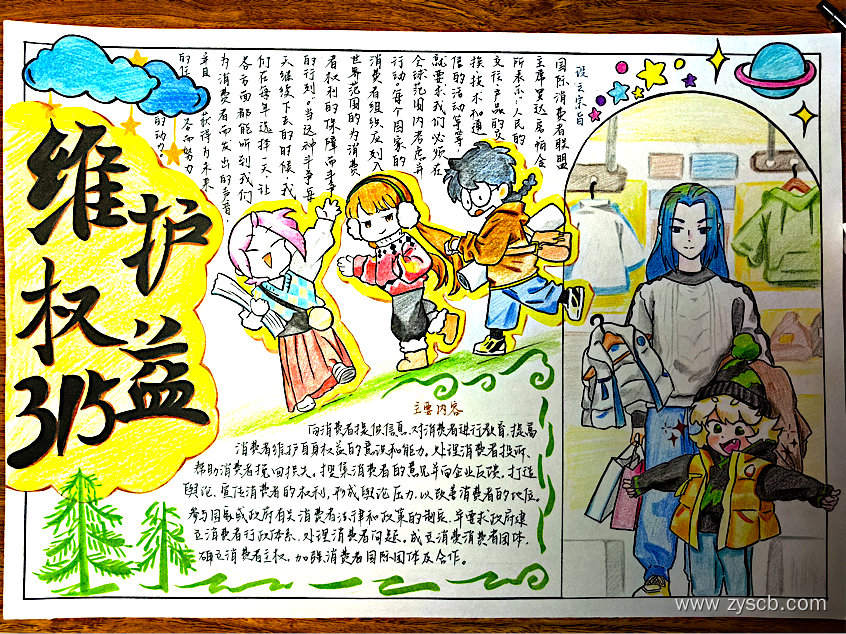 维护
权益
315
设立宗旨
国际消费者联盟
主席里达房帕会
所表示:人民的
交往:产品的交
换技术和通
信的活动等等,
就要求我们必须在
全球范围内考虑并
行动。每个国家的
消费者组织应列入
世界范围的为消费
者权利的保障而斗争
的行列。当这种斗争每
天继续下去的时候,我
们在每年选择一天,让
各方面都能听到我们
为消费者而发出的声音
并且 获得为未来
的任务而努力
的动力。
主要内容
向消费者提供信息,对消费者进行教育,提高
消费者维护自身权益的意识和能力。处理消费者投诉,
帮助消费者挽回损失。搜集消费者的意见并向企业反馈。打造
舆论,宣传消费者的权利,形成舆论压力,以改善消费者的地位。
参与国家或政府有关消费者法律和政策的制定,并要求政府建
立消费者行政体系,处理消费者问题。成立消费消费者团体,
确立消费者主权。加强消费者国际团体及合作。
www.zyscb.com